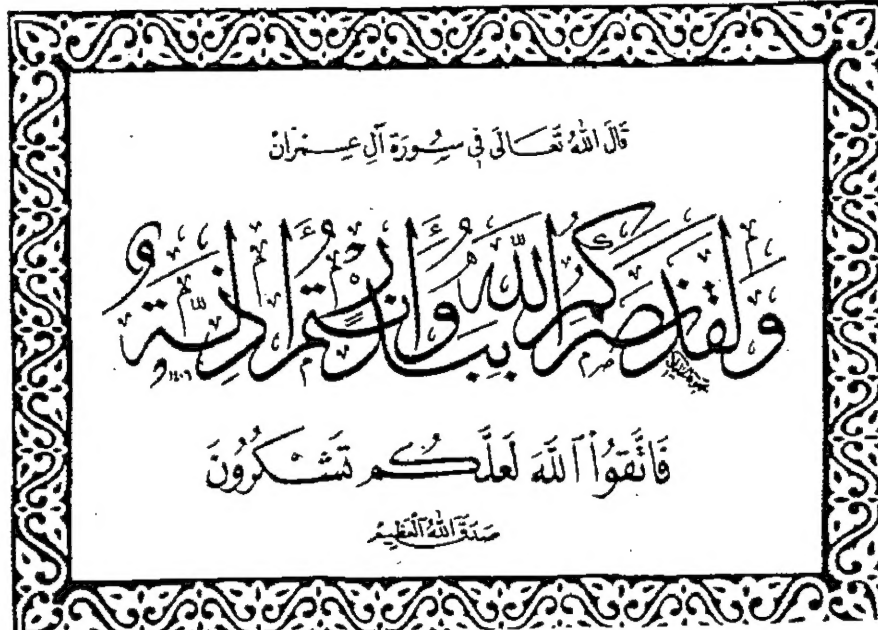 قَالَ اللهُ تَعَالَى فِي سُورَةِ آلِ عِمْرَانْ
وَلَقَدْ نَصَرَكُمُ اللَّهُ بِبَدْرٍ وَأَنْتُمْ أَذِلَّةٌ
١٤٠٦
فَاتَّقُوا۟ ٱللَّهَ لَعَلَّكُمْ تَشْكُرُونَ
صَدَقَ اللهُ العَظِيمُ